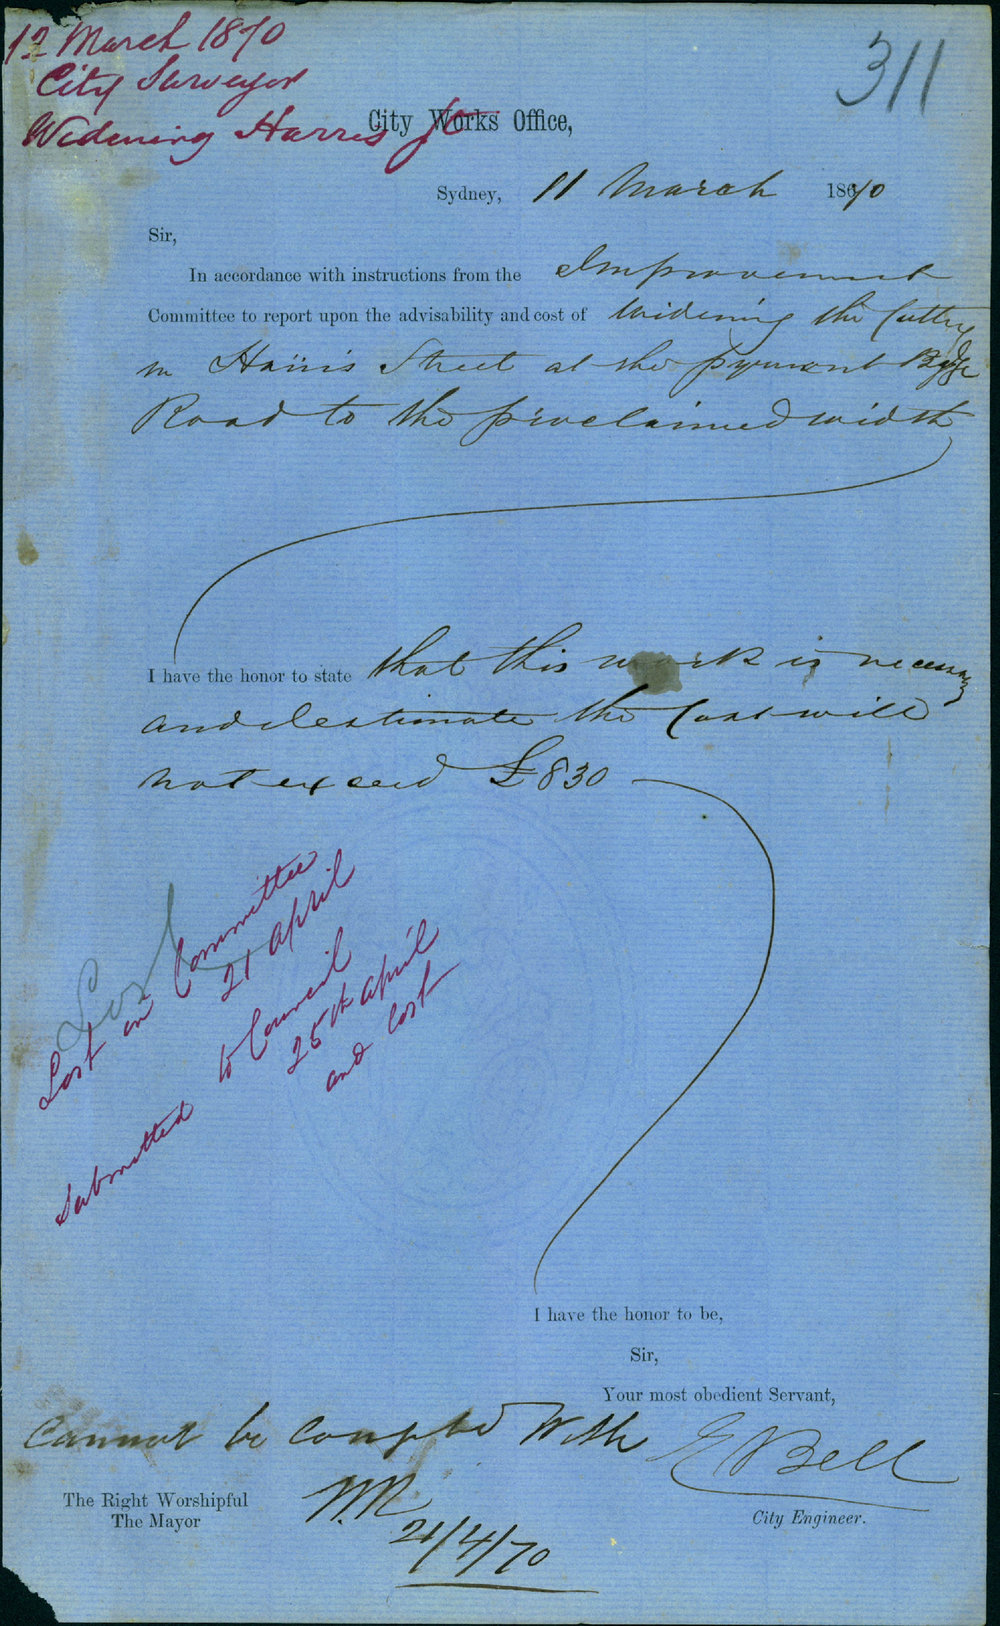 12 March 1870
City Surveyor
Widening Harris St
311
City Works Office,
Sydney, 11 March 1870
Sir,
In accordance with instructions from the Improvement
Committee to report upon the advisability and cost of widening the Cutting
in Harris Street at the Pyrmont Bridge
Road to the proclaimed width
I have the honor to state that this work is necessary
and I estimate the Cost will
not exceed £830
Lost
Lost in Committee
21 April
Submitted to Council
25th April
and lost
I have the honor to be,
Sir,
Your most obedient Servant,
Cannot be complied With
E Bell
The Right Worshipful
The Mayor
City Engineer.
21/4/70